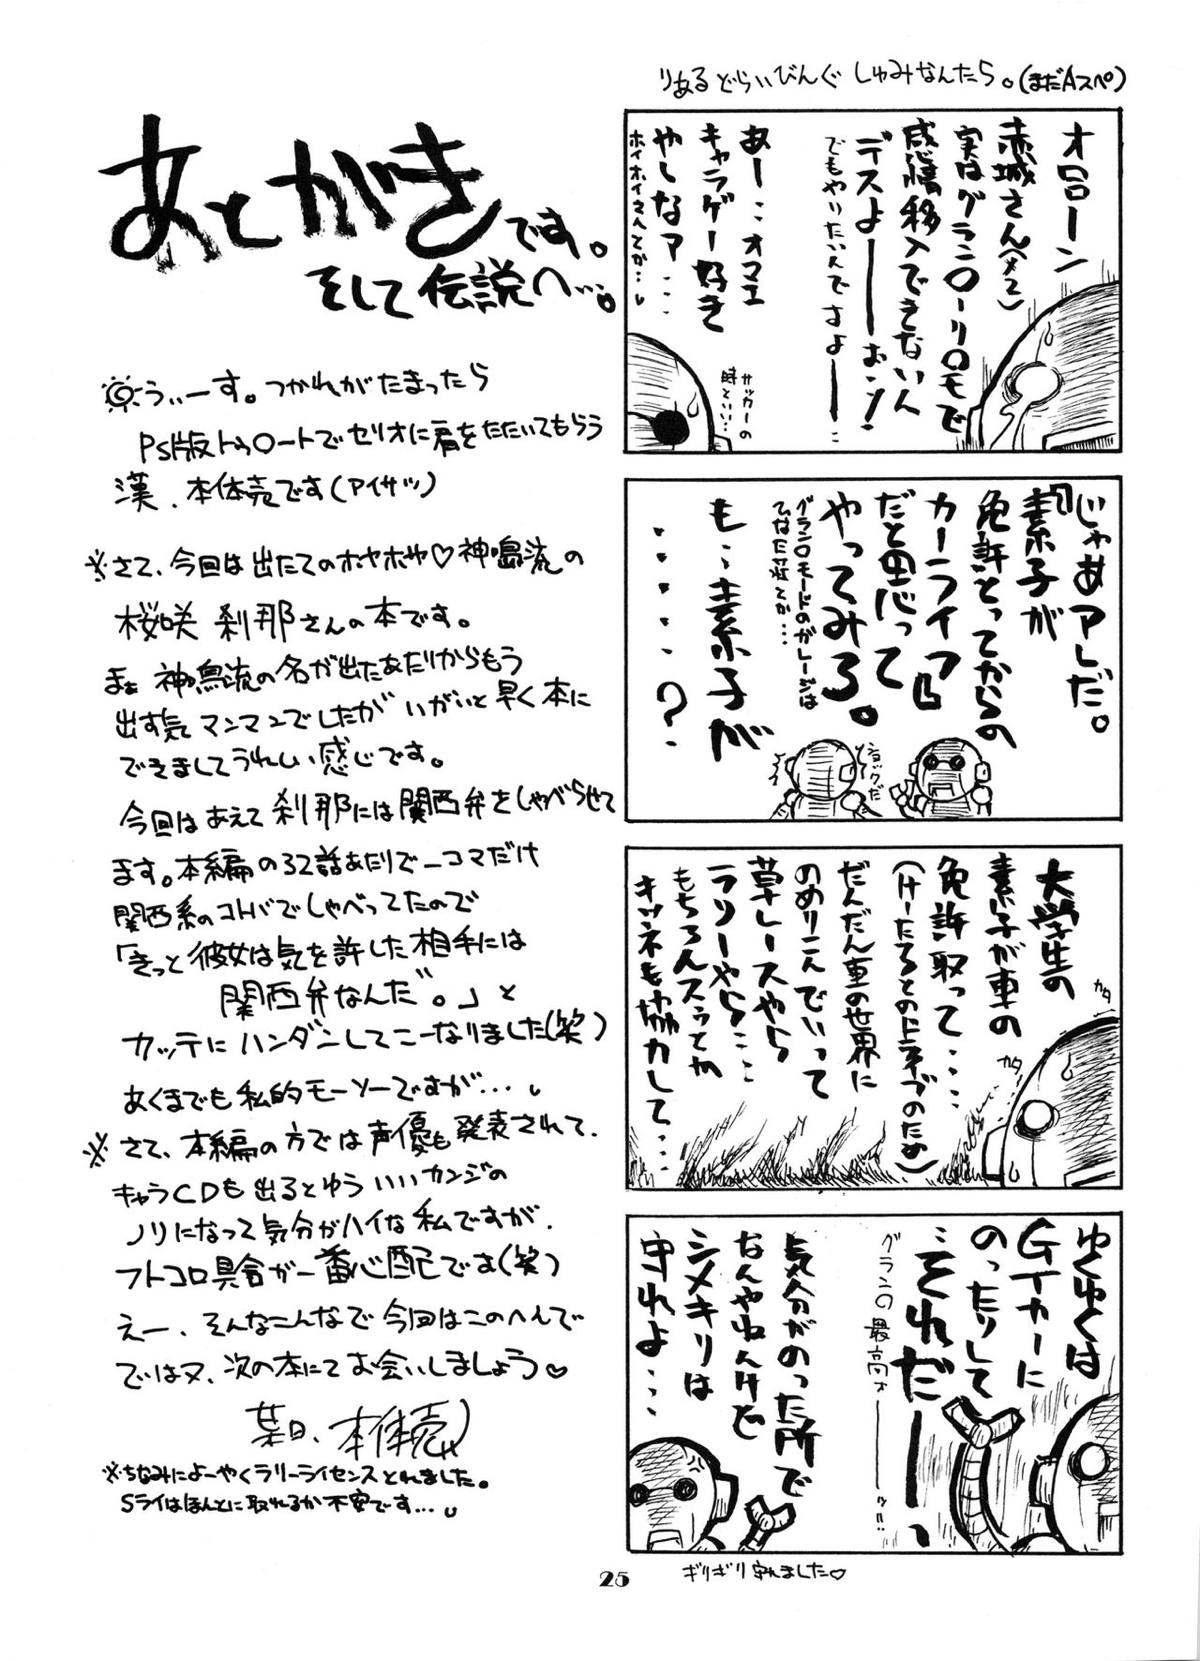 あとがきです。
そして伝説へ…。
うぃーす。つかれがたまったら
PS版トゥハートでセリオに肩をたたいてもらう
漢、本体売です(アイサツ)
※さて、今回は出たてのホヤホヤ♡神鳴流の
桜咲 刹那さんの本です。
まぁ 神鳴流の名が出たあたりからもう
出す気マンマンでしたが いがいと早く本に
できましてうれしい感じです。
今回はあえて刹那には関西弁をしゃべらせて
ます。本編の32話あたりで一コマだけ
関西系のコトバでしゃべってたので
「きっと彼女は気を許した相手には
関西弁なんだ。」と
カッテにハンダンしてこーなりました(笑)
あくまでも私的モーソーですが…。
※さて、本編の方では声優も発表されて、
キャラCDも出るとゆういいカンジの
ノリになって気分がハイな私ですが、
フトコロ具合が一番心配です(笑)
えー、そんなこんなで今回はこのへんで
ではヌ、次の本にてお会いしましょう♡
葉日、本体売
※ちなみによーやくラリーライセンスとれました。
Sライはほんとに取れるか不安です…。
りあるどらいびんぐ しゅみなんたら。(まだAスペ)
オローン
赤城さん(メて)
実はグランローリロモで
感情移入できないん
デスよーーおン!
でもやりたいんですよーー
あー…オマエ
キャラゲー好き
やしなァ…
ホイホイさんとか…。
サッカーの
時といい…
じゃあアレだ。
『素子が
免許とってからの
カーライフ』
だと思って
やってみろ。
グランロモードのガレージは
ひなた荘とか…
も…素子が
…………?
ショックだ
大学生の
素子が車の
免許取って……
(けーたろとの上京ブのため)
だんだん車の世界に
のめりこんでいって
草レースやら
ラリーやら…
もちろんスゥてか
キツネも協力して…
カタ
カタ
ゆくゆくは
GTカーに
のったりして
…それだーーっ
グランロ最高ォーーッ!!
気分がのった所で
なんやねんけど
シメキリは
守れよ…
ギリギリ守れました♡
25